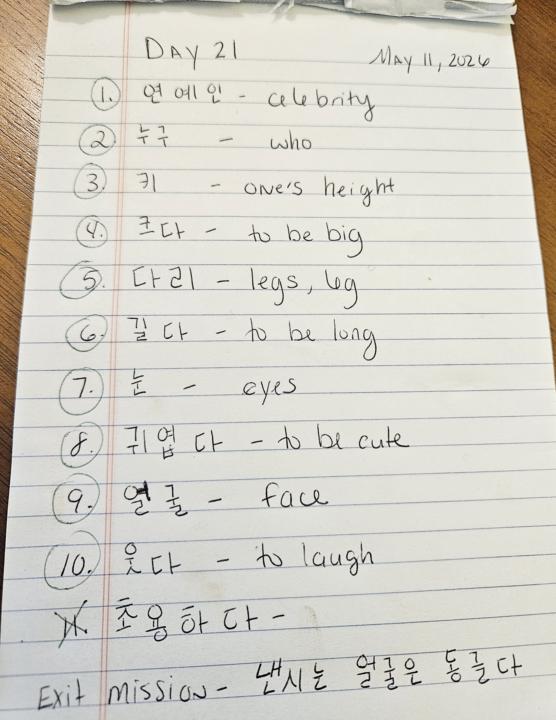 DAY 21 MAY 11, 2026
1. 연예인 - celebrity
2 누구 - who
3. 키 - one's height
4. 크다 - to be big
5. 다리 - legs, leg
6. 길다 - to be long
7. 눈 - eyes
8. 귀엽다 - to be cute
9. 얼굴 - face
10. 웃다 - to laugh
11. 조용하다 -
Exit mission - 낸시는 얼굴은 동글다